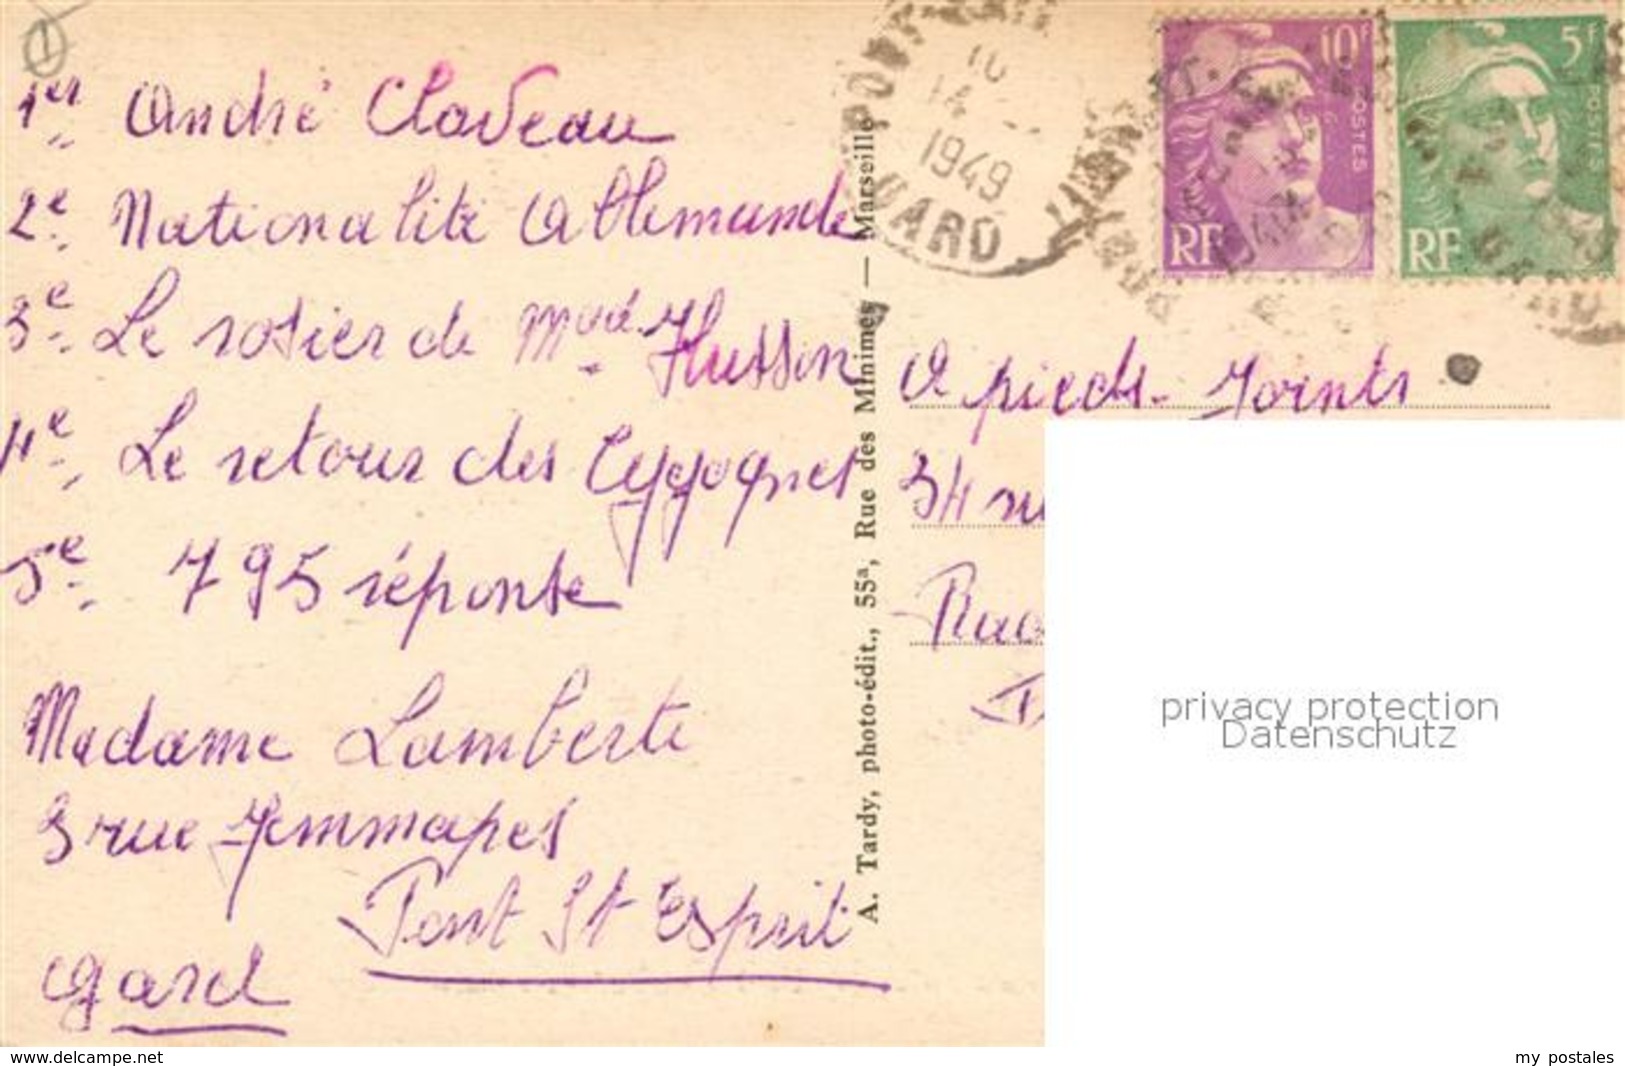 1er André Claveau
2e Nationalité Allemande
3e Le rosier de Mad. Husson
4e Le retour des Cygognes
5e 795 réponse
Madame Lamberti
3 rue Jemmapes
Pont St Esprit
Gard
A. Tardy, photo-édit., 55a, Rue des Minimes — Marseille
1949
GARD
10F
POSTES
RF
5F
POSTES
RF
A pieds-Joints
34
privacy protection
Datenschutz
www.delcampe.net
my postales